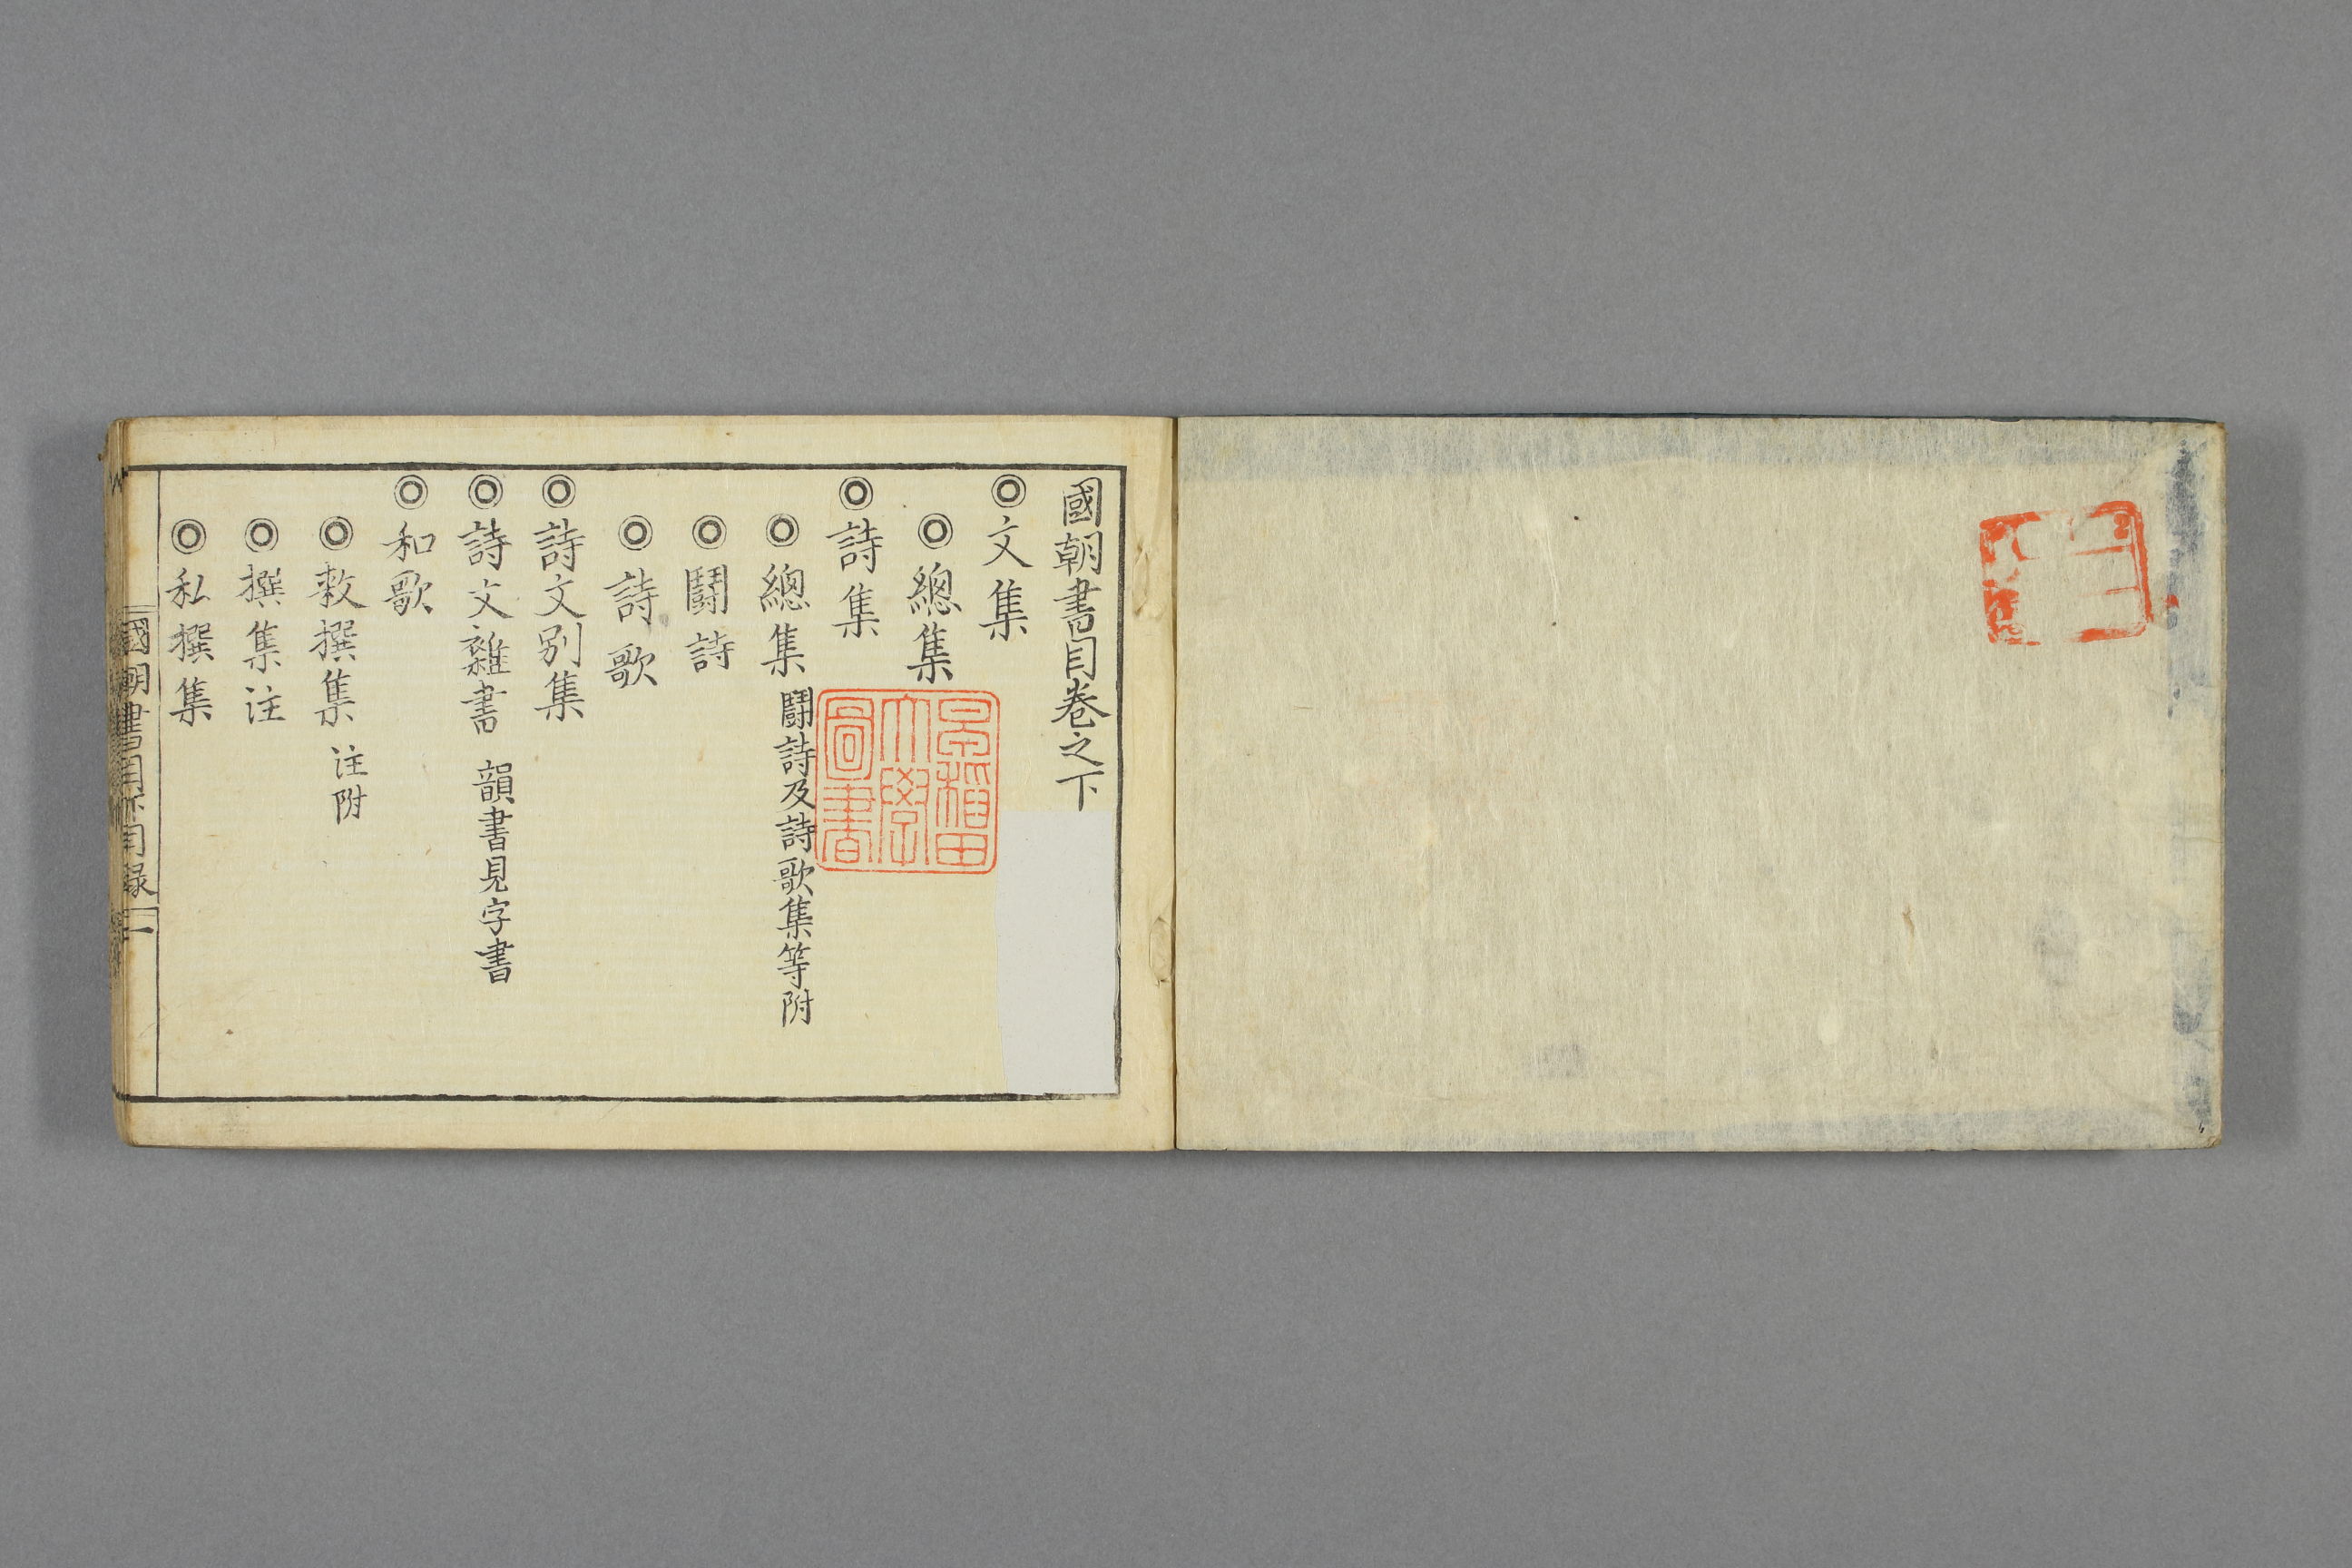 國朝書目卷之下
◎文集
◎總集
◎詩集
◎總集 鬪詩及詩歌集等附
◎鬪詩
◎詩歌
◎詩文別集
◎詩文雜書 韻書見字書
◎和歌
◎敕撰集 注附
◎撰集注
◎私撰集
國朝書目下目録 一
早稲田
大學
圖書